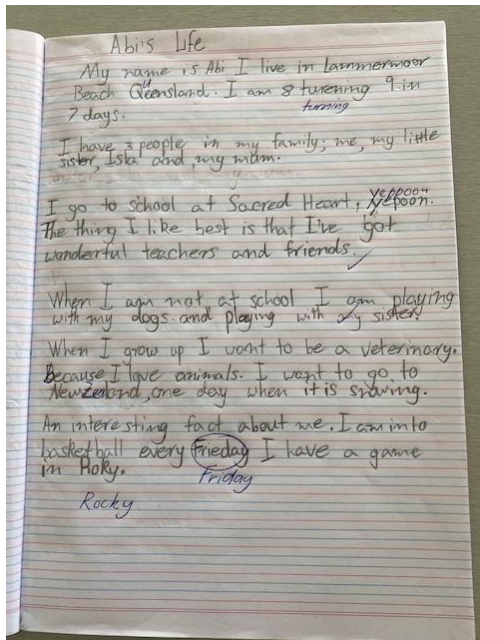 Abi's Life
My name is Abi I live in Lammermoor
Beach Queensland. I am 8 turening 9 in
turning
7 days.
I have 3 people in my family; me, my little
sister, Isla and my mum.
I go to school at Sacred Heart, Yepoon.
Yeppoon
The thing I like best is that I've got
wonderful teachers and friends.
When I am not at school I am playing
with my dogs and playing with my sister.
When I grow up I want to be a veterinary.
Because I love animals. I want to go to
NewZeland, one day when it is snowing.
An interesting fact about me. I am into
basketball every Frieday I have a game
Friday
in Roky.
Rocky